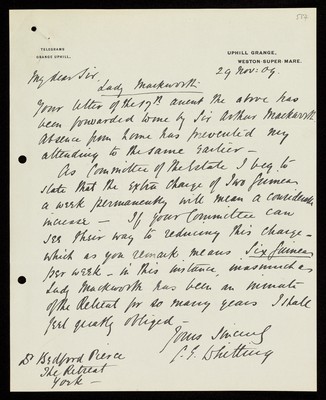 TELEGRAMS
GRANGE UPHILL.
UPHILL GRANGE,
WESTON-SUPER-MARE.
29 Nov: 09.
My dear Sir.
Lady Mackworth
Your letter of the 17th anent the above has
been forwarded to me by Sir Arthur Mackworth
absence from home has prevented my
attending to the same earlier –
As Committee of the Estate I beg to
state that the extra charge of Two Guineas
a week permanently will mean a considerable
increase – If your Committee can
see their way to reducing this charge –
which as you remark means Six Guineas
per week – in this instance, inasmuch as
Lady Mackworth has been an inmate
of the Retreat for so many years I shall
feel greatly obliged –
Yours Sincerely
Whitting
Dr Bedford Pierce
The Retreat
York –